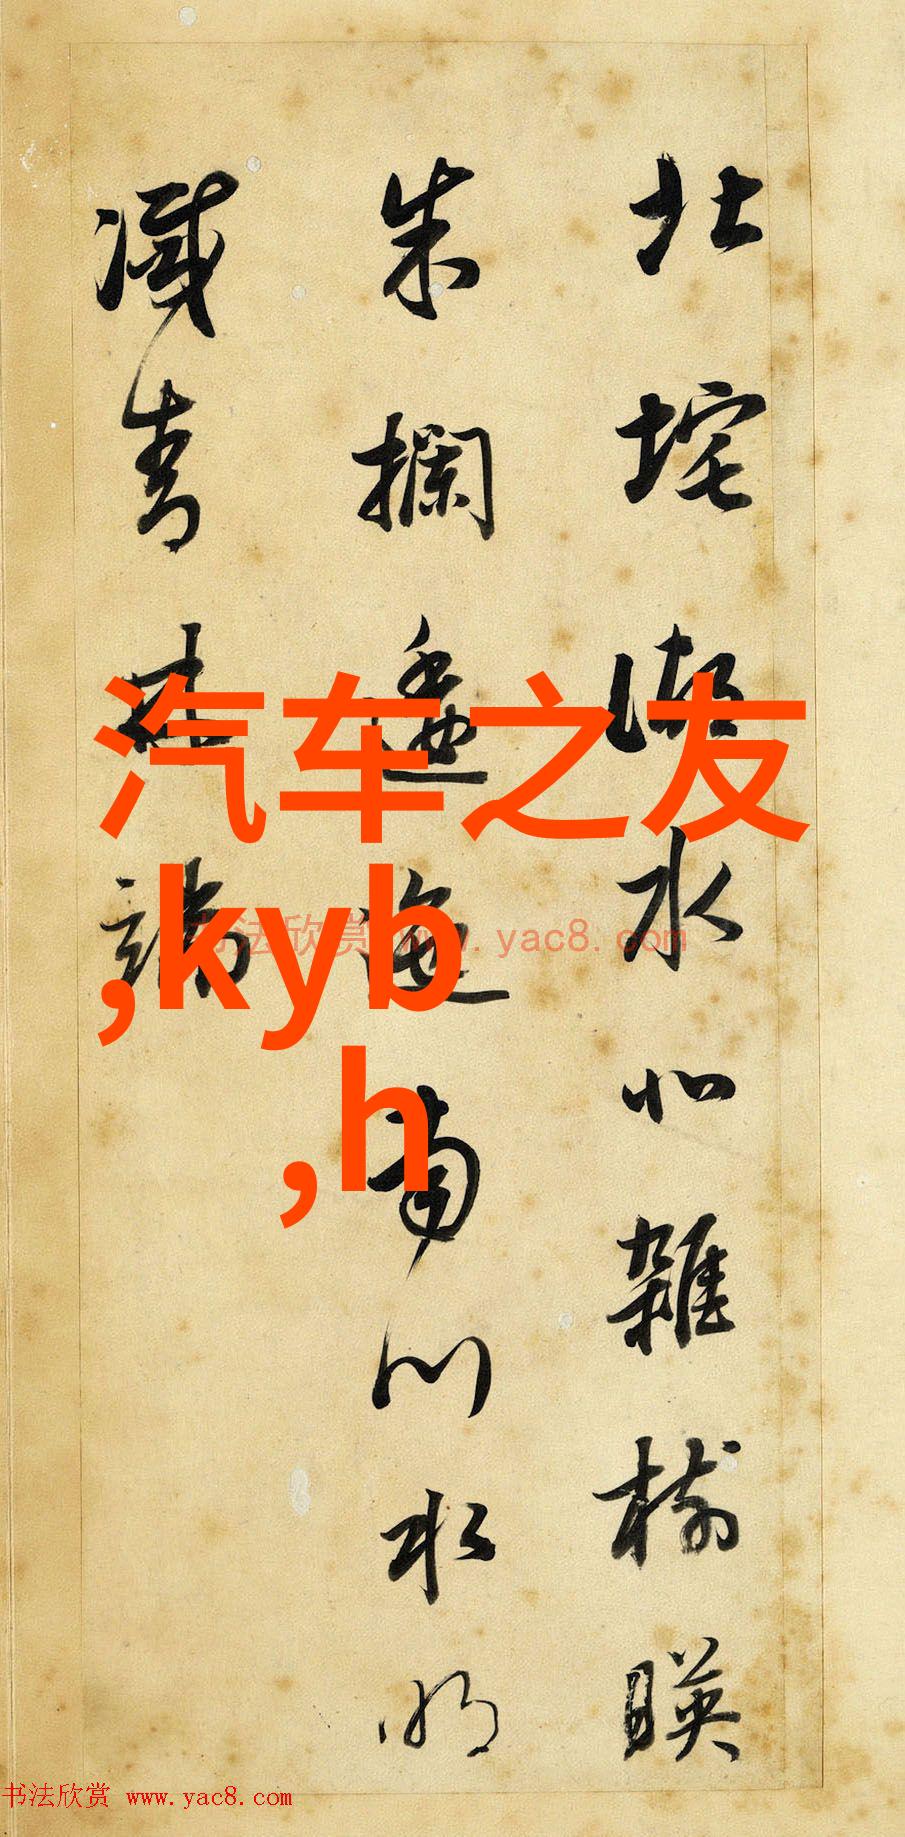 北垞湖水北雜樹暎
朱欄逶迤南川水明
滅青林端
汽车之友
,kyb
,h
书法欣赏 www.yac8.com
书法欣赏 www.yac8.com